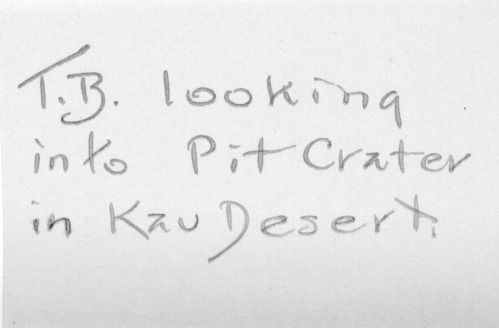 T.B. looking
into Pit Crater
in Kau Desert.